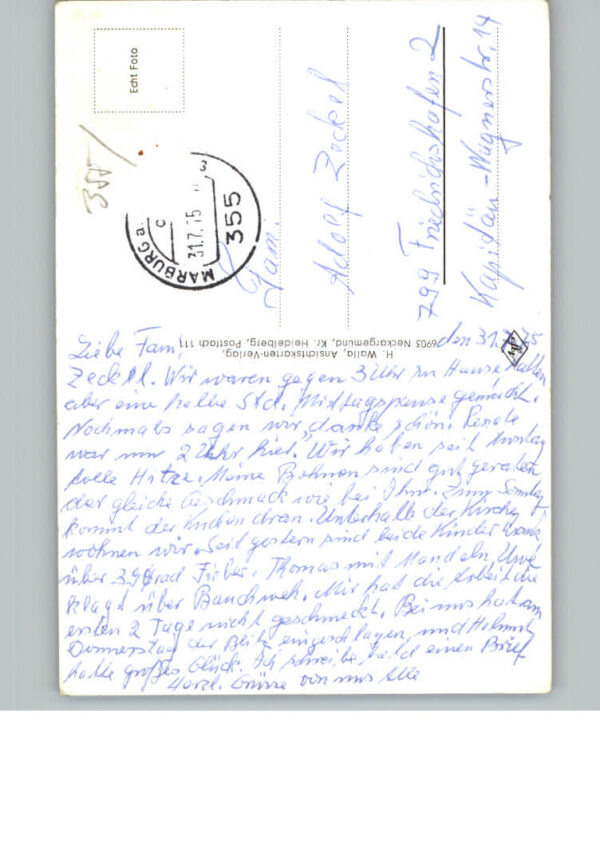 Echt Foto
355
MARBURG a.
31.7.75
355
c
3
Fam.
Adolf Zeckel
799 Friedrichshafen 2
Kapitän-Wagnerstr. 14
H. Walla, Ansichtskarten-Verlag,
6903 Neckargemünd, Kr. Heidelberg, Postfach 111
den 31.7.75
Liebe Fam.
Zeckel. Wir waren gegen 3 Uhr zu Hause hatten
aber eine halbe Std. Mittagspause gemacht.
Nochmals sagen wir danke schön. Renate
war um 2 Uhr hier. Wir haben seit Montag
tolle Hitze. Meine Bohnen sind gut geraten
der gleiche Geschmack wie bei Ihnen. Zum Sonntag
kommt der Kuchen dran. Unterhalb der Kirche
wohnen wir. Seit gestern sind beide Kinder krank
über 39 Grad Fieber. Thomas mit Mandeln, Uwe
klagt über Bauchweh. Mir hat die Arbeit die
ersten 2 Tage nicht geschmeckt. Bei uns hat am
Donnerstag der Blitz eingeschlagen, und Helmut
hatte großes Glück. Ich schreibe bald einen Brief
Herzl. Grüsse von uns Alle